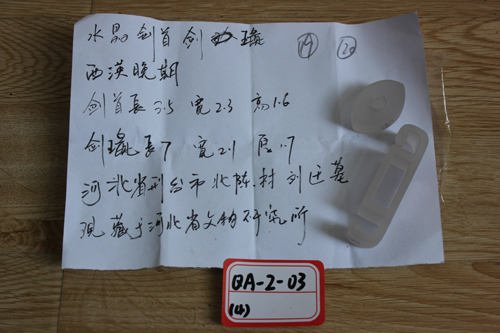 水晶剑首剑璏 19 20
西漢晚期
剑首長3.5 寬2.3 高1.6
剑璏長7 寬2.1 厚1.7
河北省邢台市北陈村刘迁墓
现藏于河北省文物研究所
QA-2-03
(4)